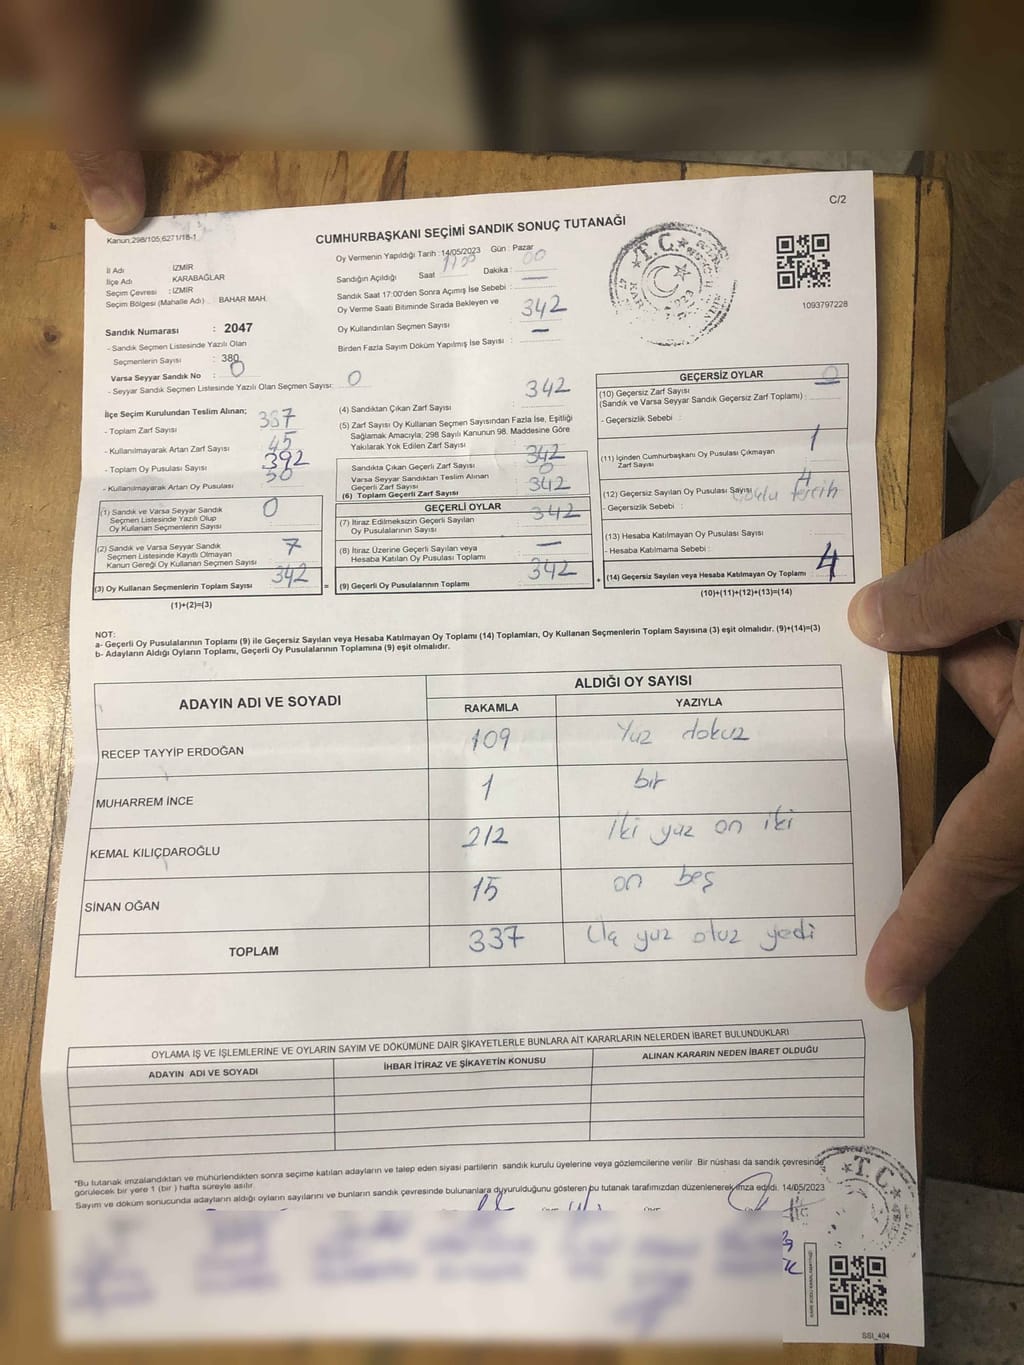 C/2
Kanun;298/105;6271/18-1
CUMHURBAŞKANI SEÇİMİ SANDIK SONUÇ TUTANAĞI
İl Adı : İZMİR
İlçe Adı : KARABAĞLAR
Seçim Çevresi : İZMİR
Seçim Bölgesi (Mahalle Adı) : BAHAR MAH.
Sandık Numarası : 2047
- Sandık Seçmen Listesinde Yazılı Olan
Seçmenlerin Sayısı : 380
Varsa Seyyar Sandık No : 0
- Seyyar Sandık Seçmen Listesinde Yazılı Olan Seçmen Sayısı: 0
Oy Vermenin Yapıldığı Tarih :14/05/2023 Gün : Pazar
Sandığın Açıldığı Saat Dakika : 00
Sandık Saat 17:00'den Sonra Açımış İse Sebebi : —
Oy Verme Saati Bitiminde Sırada Bekleyen ve
Oy Kullandırılan Seçmen Sayısı : 342
Birden Fazla Sayım Döküm Yapılmış İse Sayısı : —
T.C.
1093797228
İlçe Seçim Kurulundan Teslim Alınan;
- Toplam Zarf Sayısı 387
- Kullanılmayarak Artan Zarf Sayısı 45
- Toplam Oy Pusulası Sayısı 392
- Kullanılmayarak Artan Oy Pusulası 50
(1) Sandık ve Varsa Seyyar Sandık
Seçmen Listesinde Yazılı Olup
Oy Kullanan Seçmenlerin Sayısı 0
(2) Sandık ve Varsa Seyyar Sandık
Seçmen Listesinde Kayıtlı Olmayan
Kanun Gereği Oy Kullanan Seçmenlerin Sayısı 7
(3) Oy Kullanan Seçmenlerin Toplam Sayısı 342 =
(1)+(2)=(3)
(4) Sandıktan Çıkan Zarf Sayısı 342
(5) Zarf Sayısı Oy Kullanan Seçmen Sayısından Fazla İse, Eşitliği
Sağlamak Amacıyla; 298 Sayılı Kanunun 98. Maddesine Göre
Yakılarak Yok Edilen Zarf Sayısı
Sandıkta Çıkan Geçerli Zarf Sayısı 342
Varsa Seyyar Sandıktan Teslim Alınan
Geçerli Zarf Sayısı 0
(6) Toplam Geçerli Zarf Sayısı 342
GEÇERLİ OYLAR
(7) İtiraz Edilmeksizin Geçerli Sayılan
Oy Pusulalarının Sayısı 342
(8) İtiraz Üzerine Geçerli Sayılan veya
Hesaba Katılan Oy Pusulası Toplamı —
(9) Geçerli Oy Pusulalarının Toplamı 342 +
GEÇERSİZ OYLAR
(10) Geçersiz Zarf Sayısı
(Sandık ve Varsa Seyyar Sandık Geçersiz Zarf Toplamı) : 0
- Geçersizlik Sebebi :
(11) İçinden Cumhurbaşkanı Oy Pusulası Çıkmayan
Zarf Sayısı 1
(12) Geçersiz Sayılan Oy Pusulası Sayısı 4
- Geçersizlik Sebebi : tercih
(13) Hesaba Katılmayan Oy Pusulası Sayısı
- Hesaba Katılmama Sebebi :
(14) Geçersiz Sayılan veya Hesaba Katılmayan Oy Toplamı 4
(10)+(11)+(12)+(13)=(14)
NOT:
a- Geçerli Oy Pusulalarının Toplamı (9) ile Geçersiz Sayılan veya Hesaba Katılmayan Oy Toplamı (14) Toplamları, Oy Kullanan Seçmenlerin Toplam Sayısına (3) eşit olmalıdır. (9)+(14)=(3)
b- Adayların Aldığı Oyların Toplamı, Geçerli Oy Pusulalarının Toplamına (9) eşit olmalıdır.
ADAYIN ADI VE SOYADI ALDIĞI OY SAYISI
RAKAMLA YAZIYLA
RECEP TAYYİP ERDOĞAN 109 Yüz dokuz
MUHARREM İNCE 1 bir
KEMAL KILIÇDAROĞLU 212 İki yüz on iki
SİNAN OĞAN 15 on beş
TOPLAM 337 Üç yuz otuz yedi
OYLAMA İŞ VE İŞLEMLERİNE VE OYLARIN SAYIM VE DÖKÜMÜNE DAİR ŞİKAYETLERLE BUNLARA AİT KARARLARIN NELERDEN İBARET BULUNDUKLARI
ADAYIN ADI VE SOYADI İHBAR İTİRAZ VE ŞİKAYETİN KONUSU ALINAN KARARIN NEDEN İBARET OLDUĞU
"Bu tutanak imzalandıktan ve mühürlendikten sonra seçime katılan adayların ve talep eden siyasi partilerin sandık kurulu üyelerine veya gözlemcilerine verilir. Bir nüshası da sandık çevresinde
görülecek bir yere 1 (bir ) hafta süreyle asılır.
Sayım ve döküm sonucunda adayların aldığı oyların sayılarını ve bunların sandık çevresinde bulunanlara duyurulduğunu gösteren bu tutanak tarafımızdan düzenlenerek imza edildi. 14/05/2023
T.C.
SSİ_404